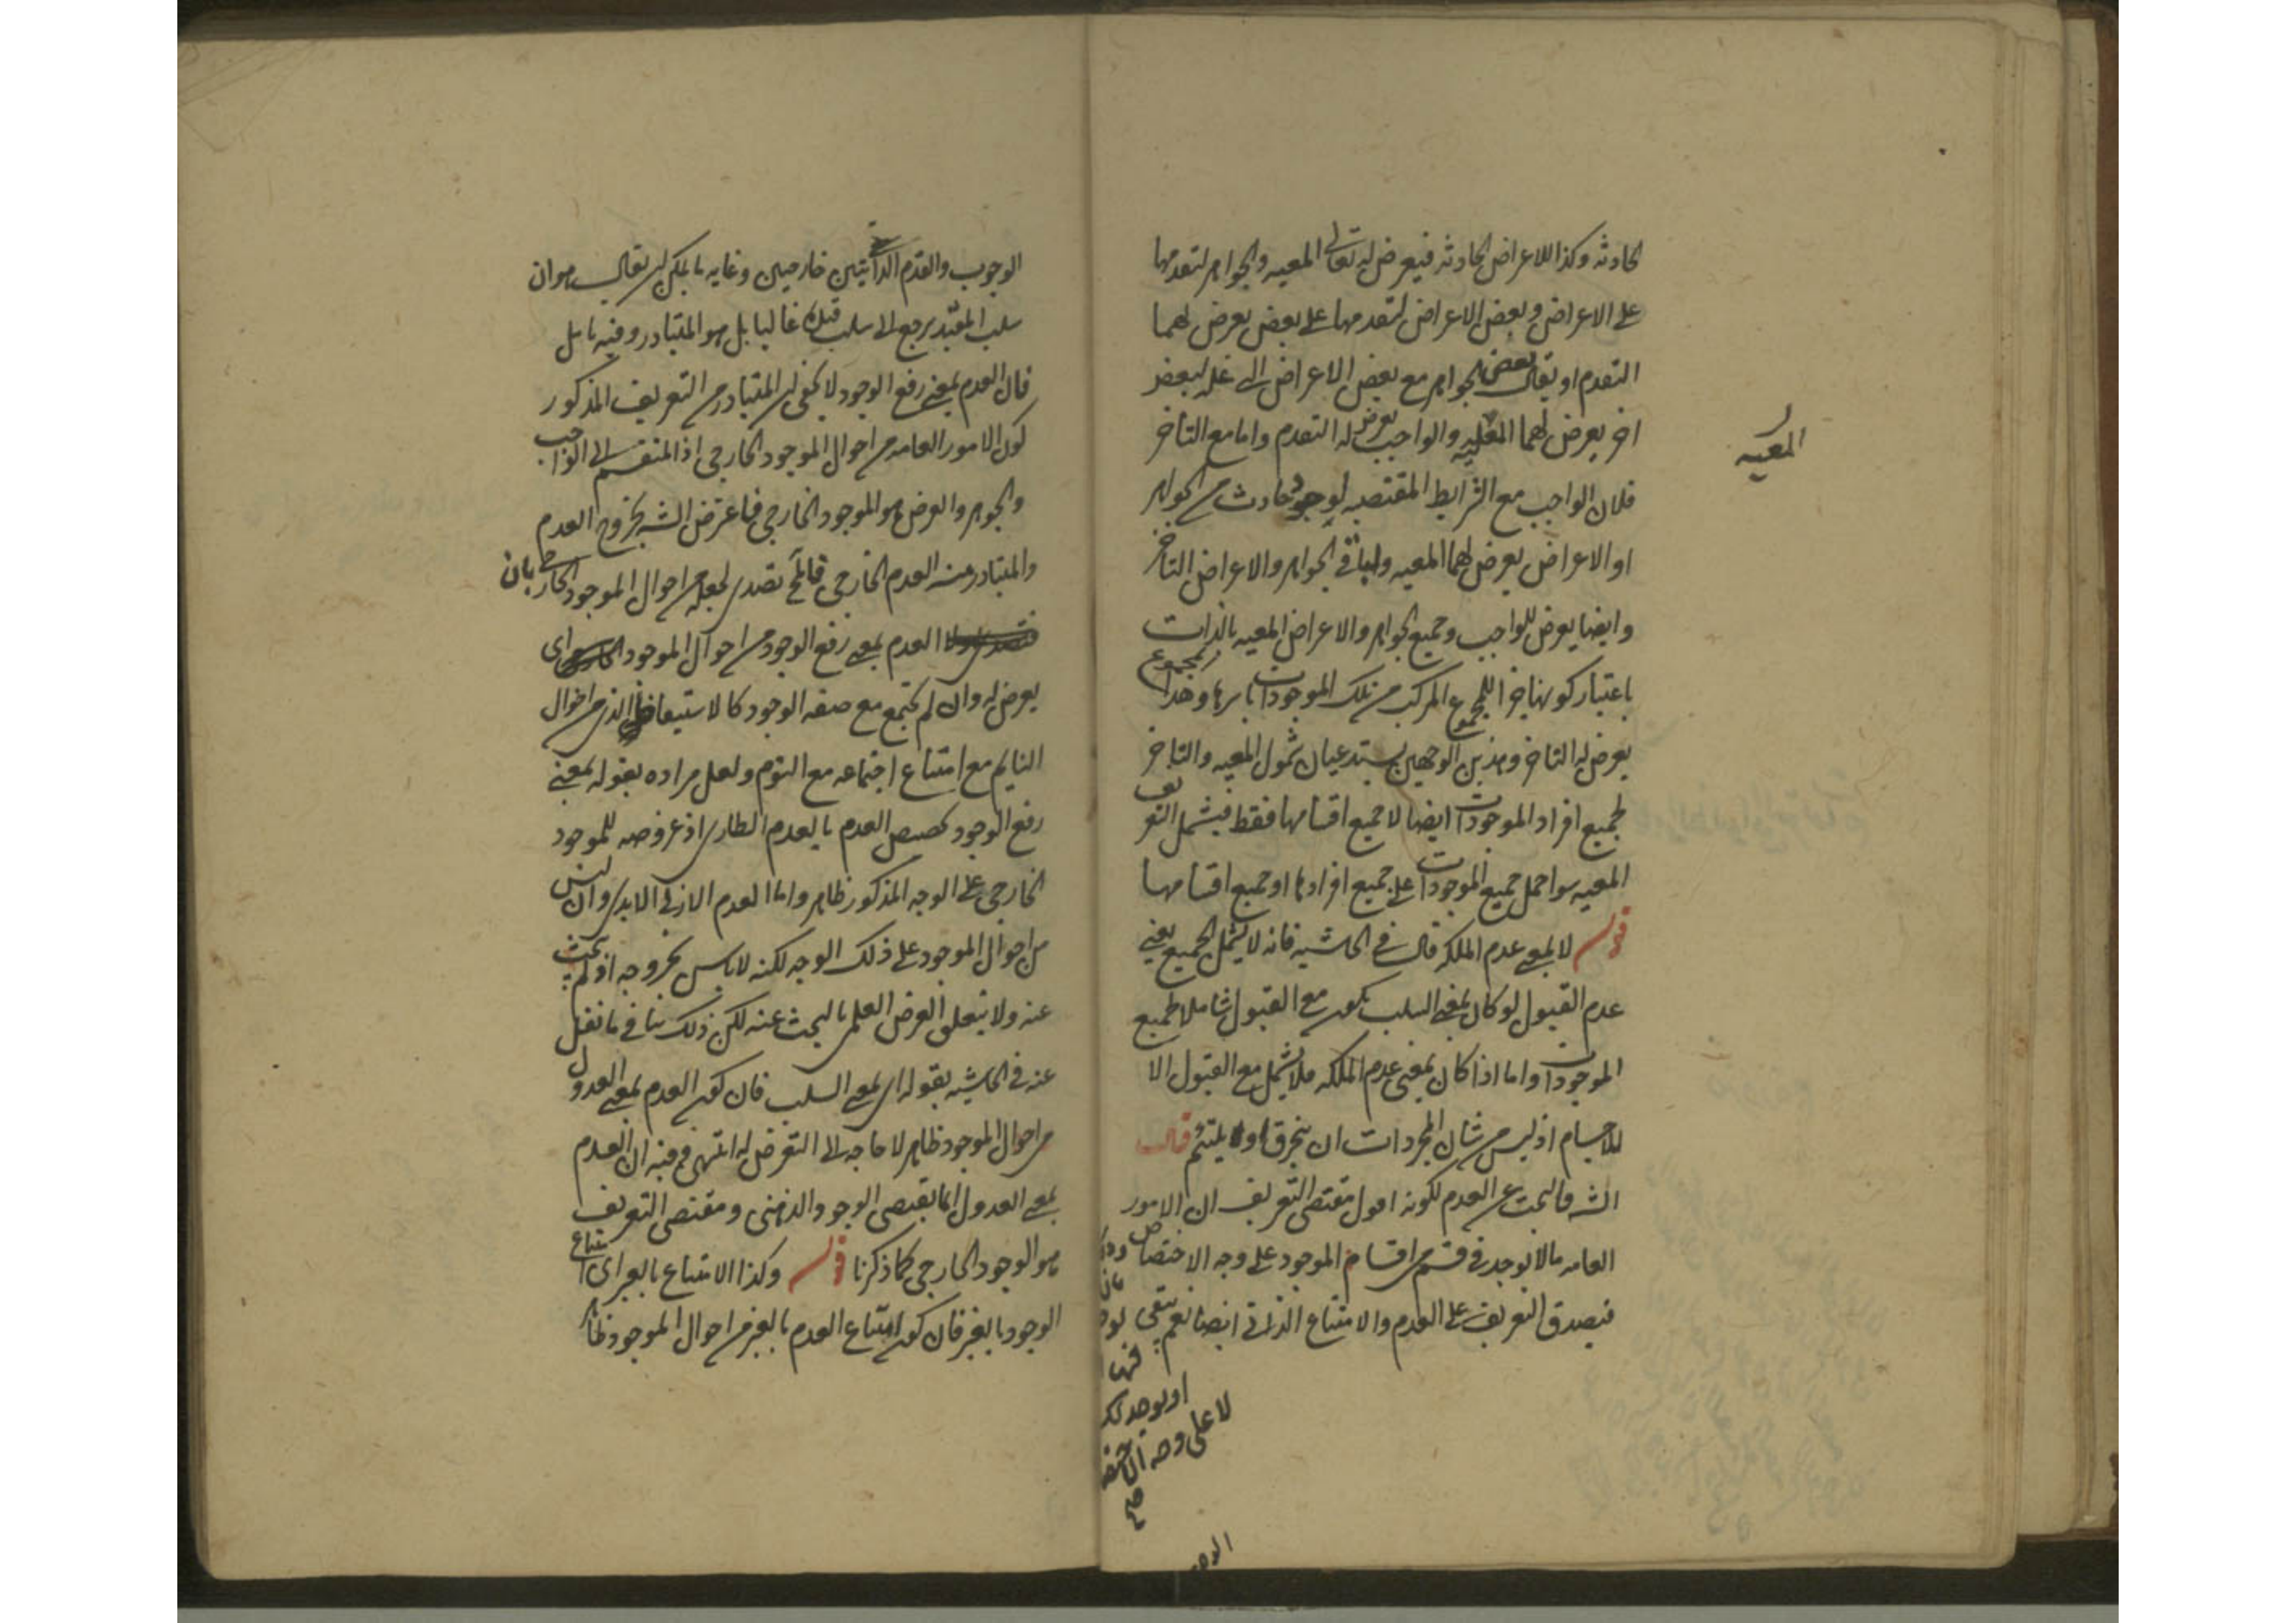 الحادثه وكذا الاعراض الحادثه فيعرض له تعالى المعيه والجواهر لتقدمها
على الاعراض وبعض الاعراض لتقدمها على بعض يعرض لهما
التقدم او يقال بعض الجواهر مع بعض الاعراض الى عله لبعض
اخر يعرض لهما المعيه والواجب يعرض له التقدم واما مع التأخر
فلان الواجب مع الشرايط المقتضيه لوجود حادث من الجواهر
او الاعراض يعرض لهما المعيه ولباقي الجواهر والاعراض التأخر
وايضا يعرض للواجب وجميع الجواهر والاعراض المعيه بالذات
باعتبار كونها جزا للمجموع المركب من تلك الموجودات باسرها وهذا المجموع
يعرض له التاخر وهذين الوجهين يستدعيان شمول المعيه والتاخر
لجميع افراد الموجودات ايضا لا جميع اقسامها فقط فيشمل التعريف
المعيه سوا حمل جميع الموجودات على جميع افرادها او جميع اقسامها
قوله لا بمعنى عدم الملكه قال في الحاشيه فانه لا يشمل الجميع يعني
عدم القبول لو كان بمعنى السلب يكون مع القبول شاملا لجميع
الموجودات واما اذا كان بمعنى عدم الملكه فلا يشمل مع القبول الا
للاجسام اذ ليس من شان المجردات ان ينخرق او يلتئم قال
الشـ فالبحث عن العدم لكونه اقول مقتضى التعريف ان الامور
العامه ما لا يوجد في قسم من اقسام الموجود على وجه الاختصاص
فيصدق التعريف على العدم والامتناع الذاتي ايضا نعم يبقى
او يوجد
لا على وجه
صح
المعيه
الوجوب والقدم الذاتيتين خارجين وغايه ما يمكن ان يقال هو ان
سلب المقيد يرجع الى سلب قيده غالبا بل هو المتبادر وفيه تامل
قال العدم بمعنى رفع الوجود لا يخفى ان المتبادر من التعريف المذكور
كون الامور العامه من احوال الموجود الخارجي اذ المنقسم الى الواجب
والجوهر والعرض هو الموجود الخارجي فاعترض الشـ بخروج العدم
والمتبادر منه العدم الخارجي فالمحـ تصدى لجعله من احوال الموجود الخارجي بان
العدم بمعنى رفع الوجود من احوال الموجود اى
يعرض له وان لم يجتمع مع صفه الوجود كالاستيقاظ الذى من احوال
النايم مع امتناع اجتماعه مع النوم ولعل مراده بقوله بمعنى
رفع الوجود تخصيص العدم بالعدم الطارى اذ عروضه للموجود
الخارجي على الوجه المذكور ظاهر واما العدم الازلي الابدى وان ليس
من احوال الموجود على ذلك الوجه لكنه لا باس بخروجه اذ لم يبحث
عنه ولا يتعلق الغرض العلمى بالبحث عنه لكن ذلك ينافي ما نقل
عنه في الحاشيه بقوله اى بمعنى السلب فان كون العدم بمعنى العدول
من احوال الموجود ظاهر لا حاجه الى التعرض له انتهى وفيه ان العدم
بمعنى العدول انما يقتضى الوجود الذهنى ومقتضى التعريف
هو الوجود الخارجي كما ذكرنا قوله وكذا الامتناع بالغير اى امتناع
الوجود بالغير فان كون امتناع العدم بالغير من احوال الموجود ظاهر